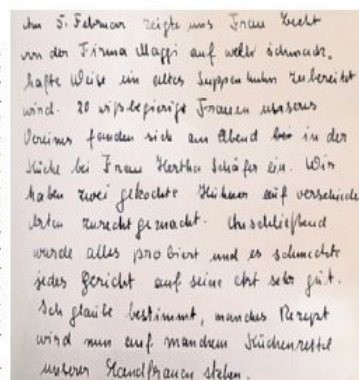 Am 5. Februar zeigte uns Frau Zecht
von der Firma Maggi auf welch schmack-
hafte Weise ein altes Suppenhuhn zubereitet
wird. 20 wißbegierige Frauen unseres
Vereins fanden sich am Abend bei in der
Küche bei Frau Hertha Schäfer ein. Wir
haben zwei gekochte Hühner auf verschiede
Arten zurecht gemacht. Anschließend
wurde alles probiert und es schmeckte
jedes Gericht auf seine Art sehr gut.
Ich glaube bestimmt, manches Rezept
wird nun auf manchem Küchenzettel
unserer Landfrauen stehen.